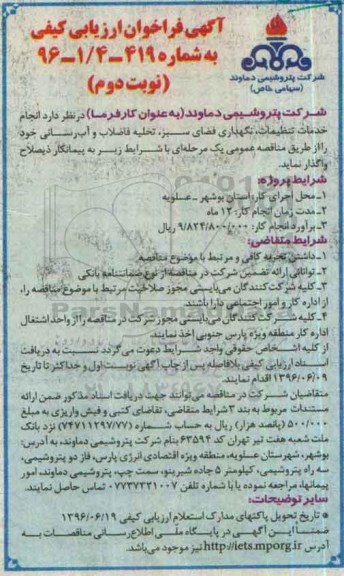 آگهی فراخوان ارزیابی کیفی
به شماره ۴۱۹-۱/۴-۹۶
(نوبت دوم)
شرکت پتروشیمی دماوند
(سهامی خاص)
شرکت پتروشیمی دماوند (به عنوان کارفرما) در نظر دارد انجام
خدمات تنظیفات، نگهداری فضای سبز، تخلیه فاضلاب و آب رسانی خود
را از طریق مناقصه عمومی یک مرحله‌ای با شرایط زیر به پیمانکار ذیصلاح
واگذار نماید.
شرایط پروژه:
۱- محل اجرای کار: استان بوشهر - عسلویه
۲- مدت زمان انجام کار: ۱۲ ماه
۳- برآورد انجام کار: ۹/۸۲۴/۸۰۰/۰۰۰ ریال
شرایط متقاضی:
۱- داشتن تجربه کافی و مرتبط با موضوع مناقصه
۲- توانائی ارائه تضمین شرکت در مناقصه از نوع ضمانتنامه بانکی
۳- کلیه شرکت کنندگان می‌بایستی مجوز صلاحیت مرتبط با موضوع مناقصه را،
از اداره کار و امور اجتماعی دارا باشند
۴- کلیه شرکت کنندگان می‌بایستی مجوز شرکت در مناقصه را از واحد اشتغال
اداره کار منطقه ویژه پارس جنوبی اخذ نمایند.
از کلیه اشخاص حقوقی واجد شرایط دعوت می گردد نسبت به دریافت
اسناد ارزیابی کیفی بلافاصله پس از چاپ آگهی نوبت اول و حداکثر تا تاریخ
۱۳۹۶/۰۶/۰۹ اقدام نمایند.
متقاضیان شرکت در مناقصه می‌توانند جهت دریافت اسناد مذکور ضمن ارائه
مستندات مربوط به بند ۳ شرایط متقاضی، تقاضای کتبی و فیش واریزی به مبلغ
۵۰۰/۰۰۰ (پانصد هزار) ریال به حساب شماره (۷۴۷۱۱۲۹۷/۷۷) نزد بانک
ملت شعبه هفت تیر تهران کد ۶۳۵۹۴ بنام شرکت پتروشیمی دماوند، به آدرس:
بوشهر، شهرستان عسلویه، منطقه ویژه اقتصادی انرژی پارس، فاز دو پتروشیمی،
سه راه پتروشیمی، کیلومتر ۵ جاده شیرینو، سمت چپ، پتروشیمی دماوند، امور
پیمانها، مراجعه نموده یا با شماره تلفن ۰۷۷۳۷۳۲۱۰۰۷ تماس حاصل نمایند.
سایر توضیحات:
* تاریخ تحویل پاکتهای مدارک استعلام ارزیابی کیفی ۱۳۹۶/۰۶/۱۹
ضمناً این آگهی در پایگاه ملی اطلاع رسانی مناقصات به
آدرس http://iets.mporg.ir نیز موجود می‌باشد.